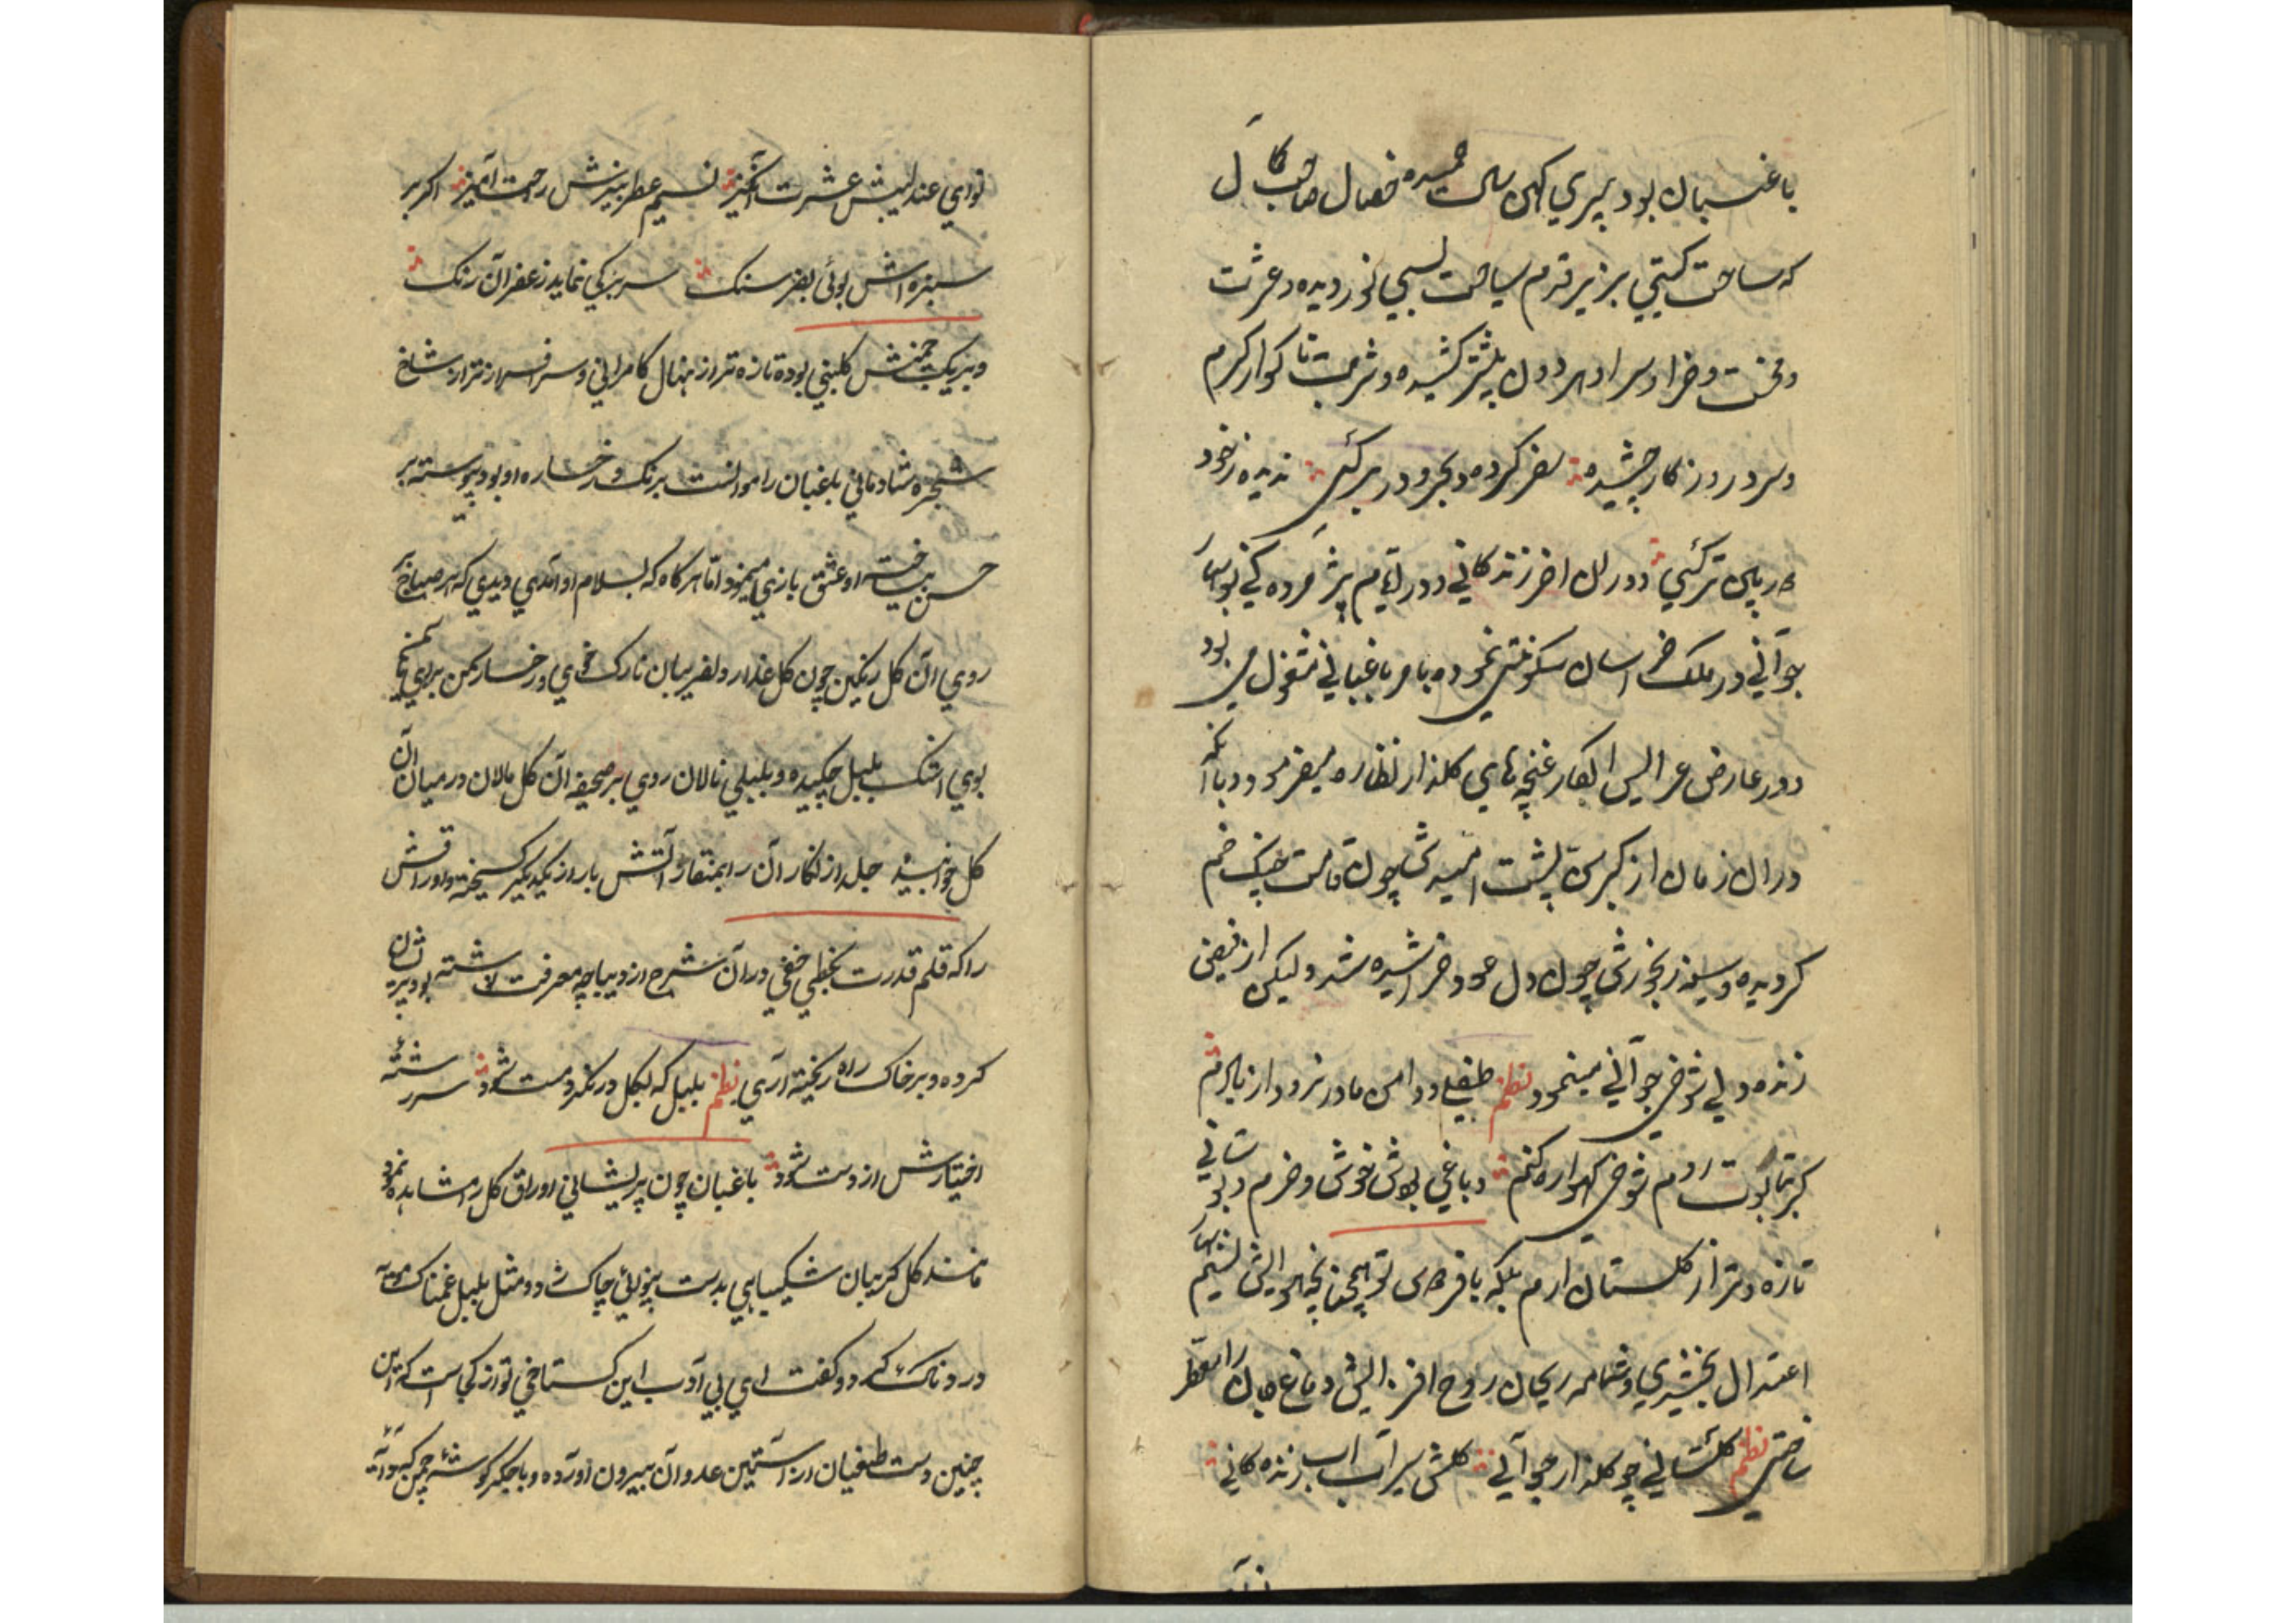 باغبان بود پیری کهن سال حمیده خصال صاحب کمال
که ساحت گیتی بزیر قدم سیاحت بسی نوردیده و عشرت
و محنت و ضرا و سرا دهر دون بیشتر کشیده و شربت ناگوار گرم
و سرد روزگار چشیده سفر کرده و بحر و در بر کسی ندیده ز خود
در میان تر کسی در ان اخر زندگانی و در ایام پژمرده کی نوبهار
جوانی در ملک خراسان سکونتی نموده بامر باغبانی مشغول می بود
و در عارض عرایس ابکار غنچه های کلذار نظاره میفرمود و با آنکه
در ان زمان از کبر سن پشت امیدش چون قامت چنک خم
کردیده و سینه رنجورش چون دل عود خراشیده شد و لیکن از فیض
زنده دلی شوخی جوانی مینمود نظم طفلی و دامن مادر
کر بتابوت روم شوخی کهواره کنم و باغی بودش خوش و خرم و بوستانی
تازه و تر از کلستان ارم بلکه بافر همچنانچه هوایش نسیم بهار
اعتدال بخشیدی و شمامه ریحان روح افزایش دماغ جان را معطر
ساختی نظم کلستانی چو کلذار جوآنی کلش سیرآب آب زنده کانی
نوای عندلیبش عشرت انکیز نسیم عطر بیزش راحت آمیز اکر بر
سبزه اش بوئی بفرسنک سر بزکی نماید زعفرآن رنک
و بر یک چمنش کلبنی بوده تازه تر از نهال کامرانی و سرافراز تر از شاخ
شجره شادمانی باغبان را موانست برنک و رخساره او بود پیوسته بر
حسن بیساخته او عشق بازی مینمود اما هر کاه که بسلام او آمدی دیدی که هر صباح بر
روی ان کل رنکین چون کل عذار دلفریبان نازک خوی و رخسار سمن برای یاسمن
بوی اشک بلبل چکیده و بلبلی نالان روی بر صحیفه ان کل مالان در میان آن
کل خوابیده جلد از نکار آن را بمنقار آتش بار از یکدیکر کسیخته و اوراقش
را که قلم قدرت بخطی خفی در آن شرح از دیباچه معرفت نوشته بود پریشان
کرده و بر خاک راه ریخته آری نظم بلبل که بکل در نکرد مست شود سررشته
اختیارش از دست شود باغبان چون پریشانی اوراق کل را مشاهده نمود
مانند کل کریبان شکیبایی بدست بیخودی چاک زد و مثل بلبل غمناک
دردناک کرد و کفت ای بی آدب این کستاخی تو از کجا است که این
چنین دست طغیان از آستین عدوآن بیرون اورده و با جکر کوشه چمن که